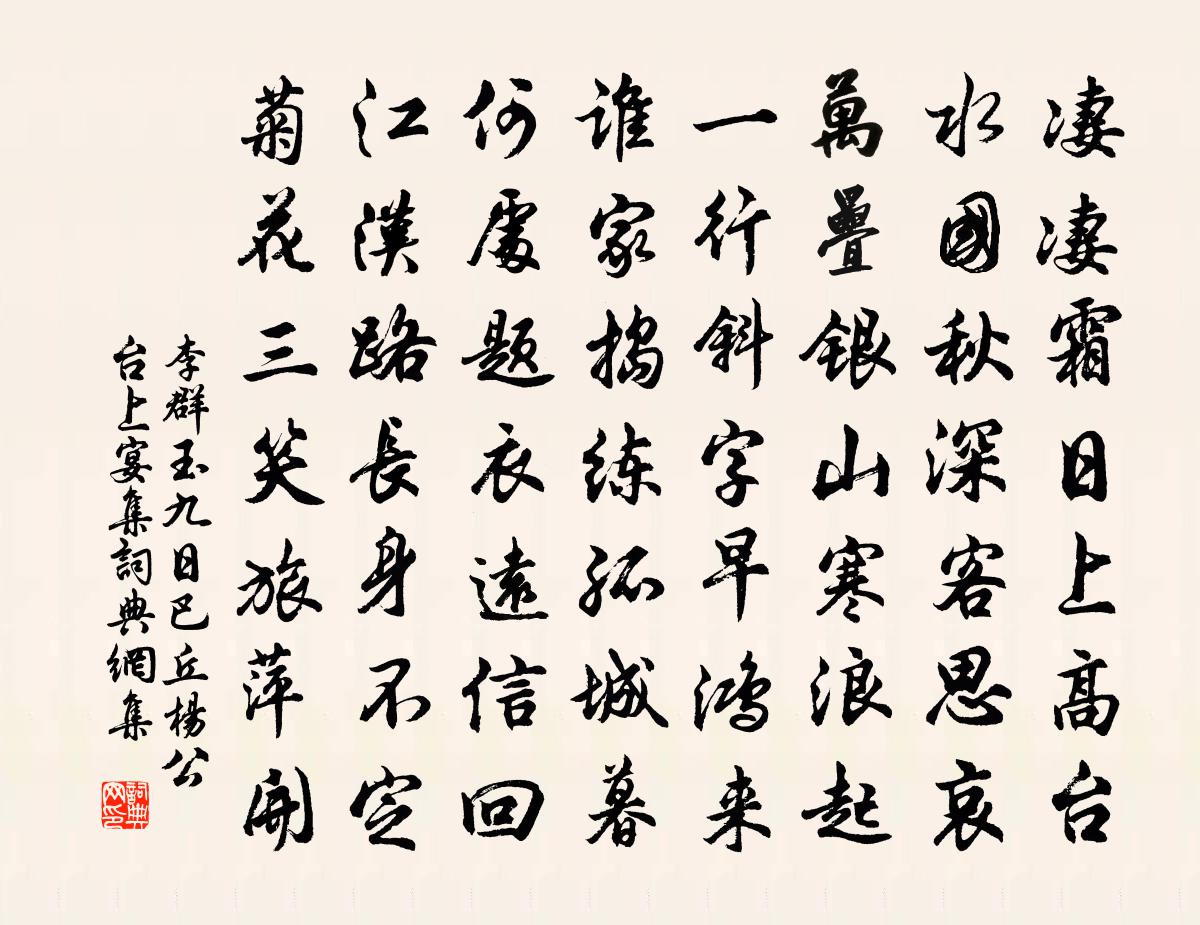 淒淒霜日上高台
水國秋深客思哀
萬疊銀山寒浪起
一行斜字早鴻来
谁家搗练孤城暮
何處題衣遠信回
江漢路長身不定
菊花三笑旅萍開
李群玉九日巴丘楊公
台上宴集詞典網集
詞典网印